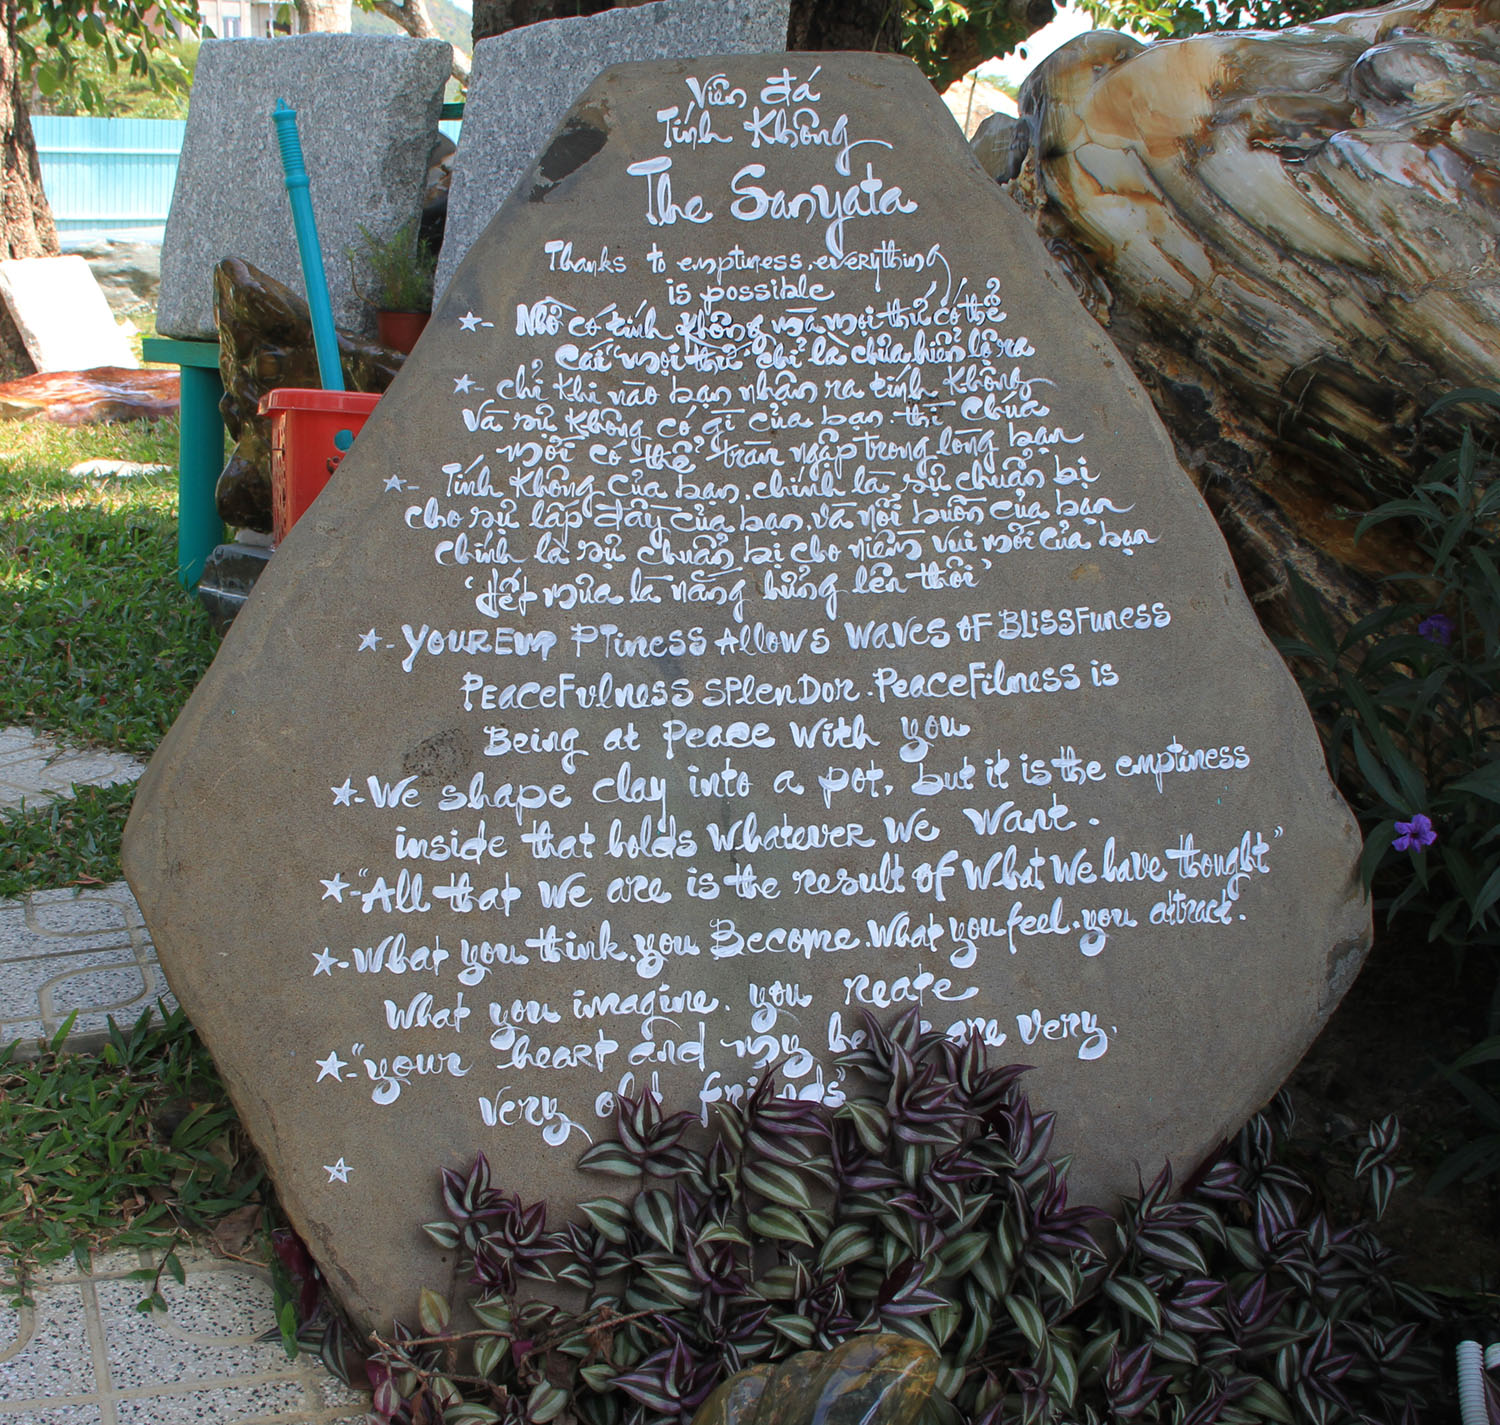 Viên đá
Tính Không
The Sanyata
Thanks to emptiness, everything
is possible
Nhờ có tính không mà mọi thứ có thể
Cái "mọi thứ" chỉ là chưa hiển lộ ra
chỉ khi nào bạn nhận ra tính không
Và sự không có gì của bạn. thì Chúa
mới có thể tràn ngập trong lòng bạn
Tính không của bạn, chính là sự chuẩn bị
cho sự lấp đầy của bạn, và nỗi buồn của bạn
chính là sự chuẩn bị cho niềm vui mới của bạn
'dết mùa là nắng hửng lên thôi'
YOUR EMPTiness Allows waves of Blissfuness
Peacefulness splendor. Peacefilness is
Being at peace with you
We shape clay into a pot, but it is the emptiness
inside that holds whatever we want.
"All that we are is the result of what we have thought"
What you think, you Become. What you feel. you attract.
What you imagine. you reate
"your heart and my are very,
very old friends"